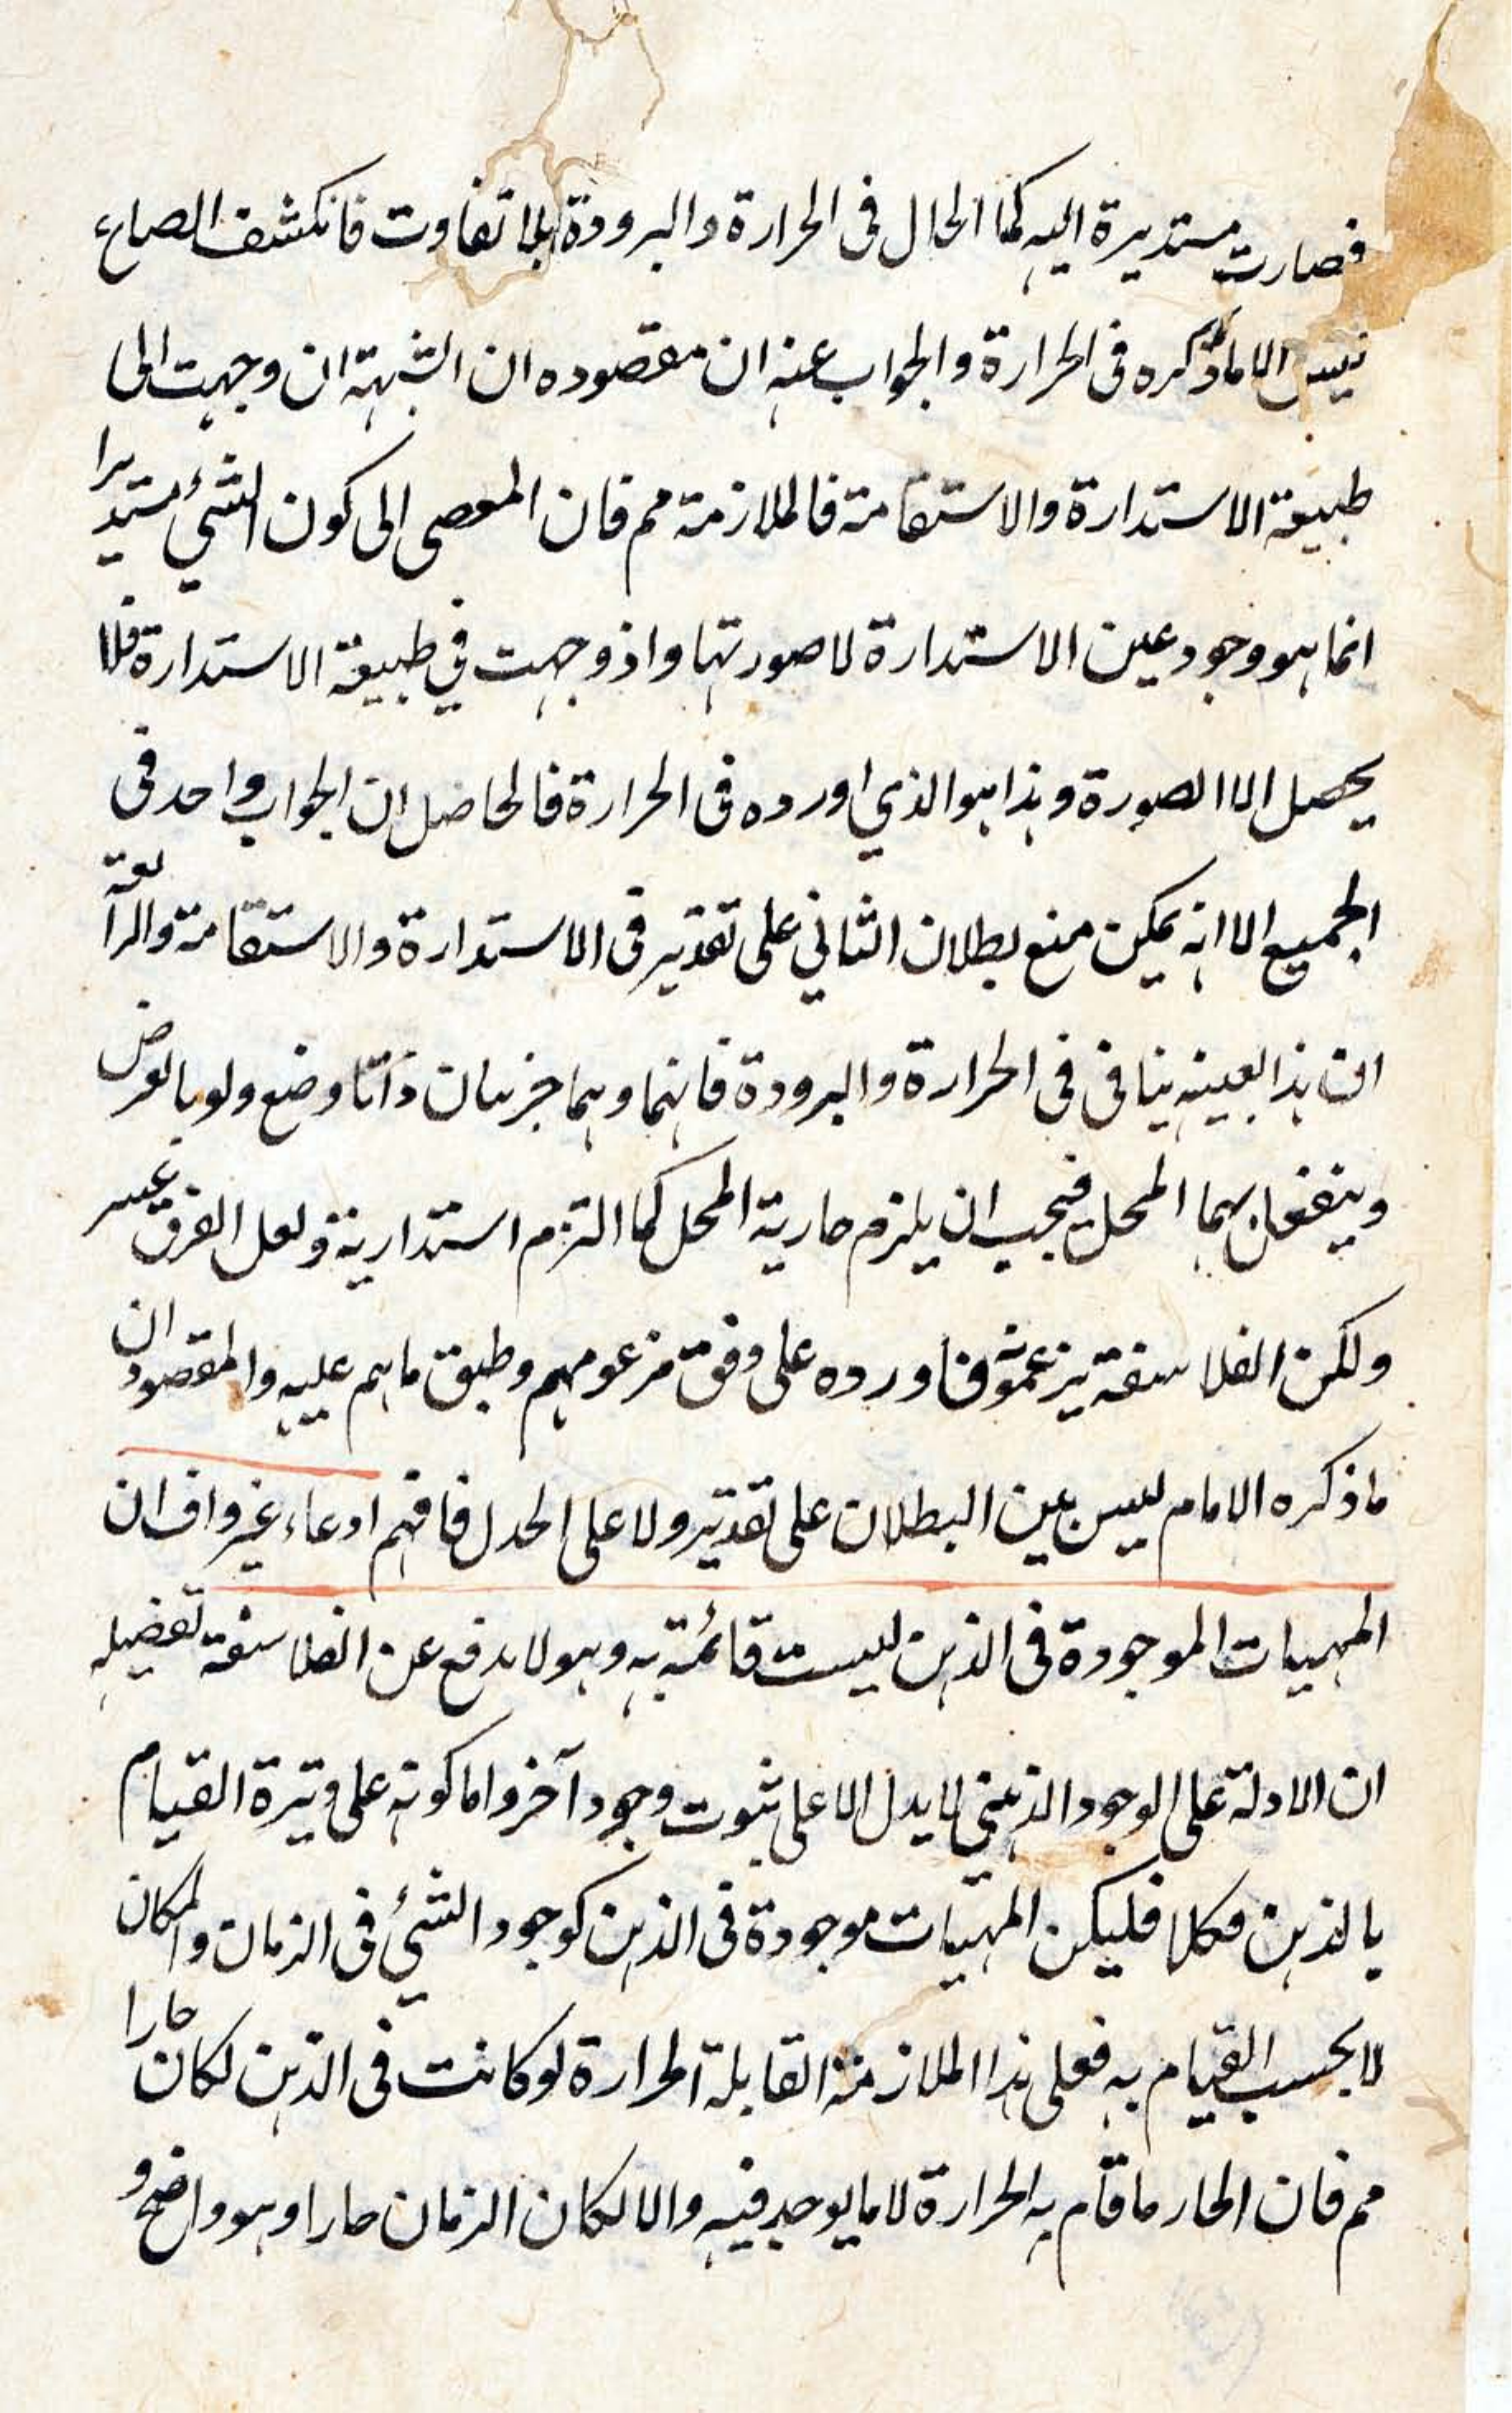 فصارت مستديرة اليه كما الحال فى الحرارة والبرودة بلا تفاوت فانكشف
ليس الا ما ذكره فى الحرارة والجواب عنه ان مقصوده ان الشبهة ان وجهت الى
طبيعة الاستدارة والاستقامة فالملازمة مم فان المعصى الى كون الشئ مستديرا
انما هو وجود عين الاستدارة لا صورتها واذ وجهت في طبيعة الاستدارة فلا
يحصل الا الصورة وهذا هو الذي اورده فى الحرارة فالحاصل ان الجواب واحد فى
الجميع الا انه يمكن منع بطلان الثاني على تقدير فى الاستدارة والاستقامة
ان هذا بعينه ينافى فى الحرارة والبرودة فانهما وهما جزئيان ذاتا وضع ولو بالعرض
وينفعل بهما المحل فيجب ان يلزم حارية المحل كما التزم استدارية ولعل الفرق عسير
ولكن الفلاسفة يزعمون فاورده على وفق مزعومهم وطبق ما هم عليه والمقصود ان
ما ذكره الامام ليس بين البطلان على تقدير ولا على الجدل فافهم ادعاء غير واف ان
المهيات الموجودة فى الذهن ليست قائمة به وهو لا يدفع عن الفلاسفة تفضيله
ان الادلة على الوجود الذهني لا يدل الا على ثبوت وجود آخر واما كونه على وتيرة القيام
بالذهن فكلا فليكن المهيات موجودة فى الذهن كوجود الشئ فى الزمان والمكان
لا بحسب القيام به فعلى هذا الملازمة القابلة الحرارة لو كانت فى الذهن لكان حارا
مم فان الحار ما قام به الحرارة لا ما يوجد فيه والا لكان الزمان حارا وهو واضح و